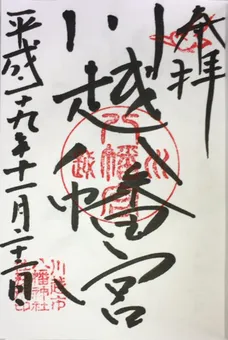 奉拝
川越八幡宮
平成二十九年十一月二十二日
川越市
八幡神社
社務所印